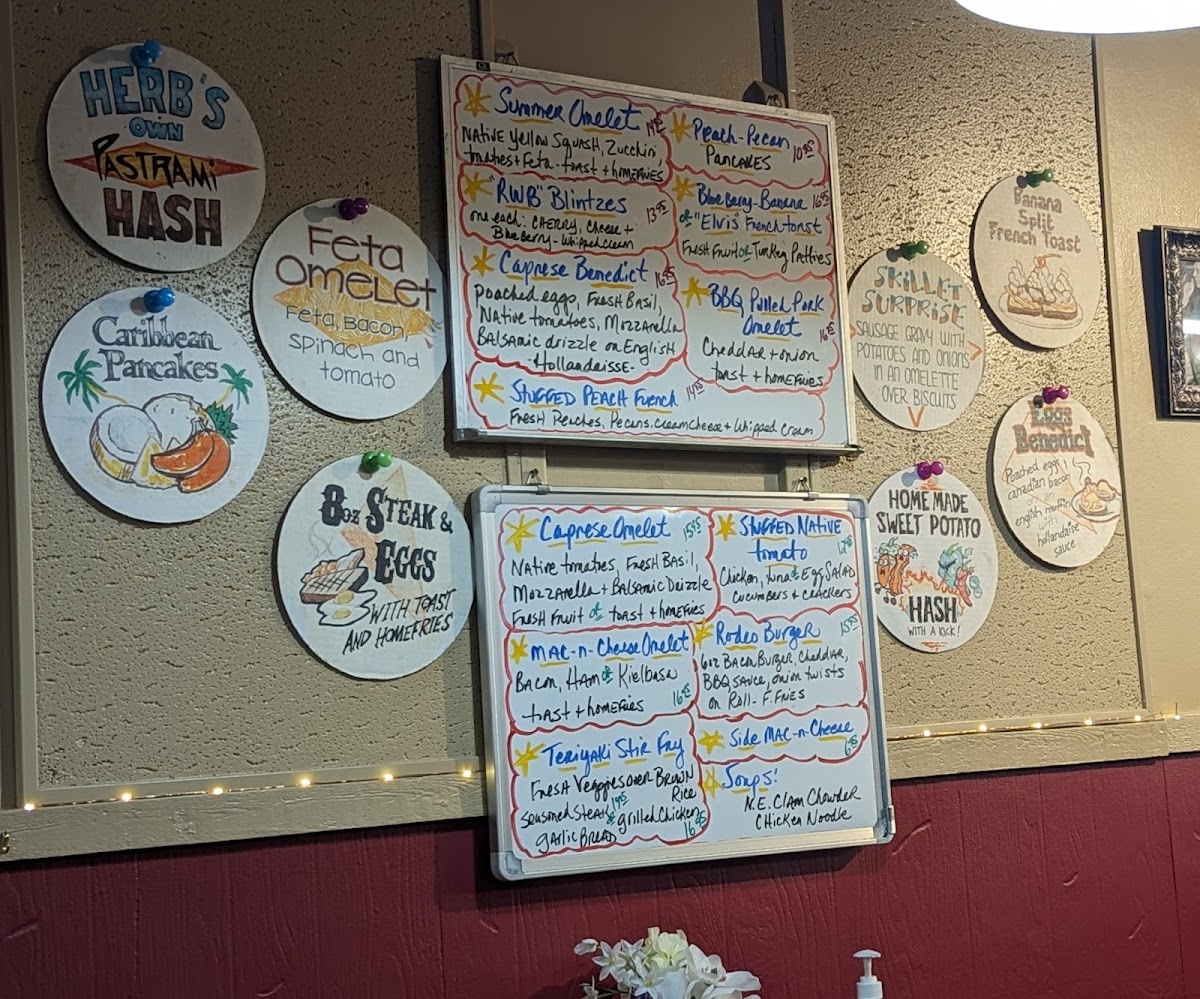 HERB'S
OWN
PASTRAMI
HASH
Caribbean
Pancakes
Feta
Omelet
Feta, Bacon,
Spinach and
tomato
8oz STEAK &
EGGS
WITH TOAST
AND HOMEFRIES
Summer Omelet
Native Yellow Squash, Zucchini,
tomatoes + Feta - toast + homefries
"RWB" Blintzes 13.95
one each: CHERRY, Cheese +
Blueberry - Whipped cream
Caprese Benedict 16.95
Poached eggs, Fresh Basil,
Native tomatoes, Mozzarella
Balsamic drizzle on English
-Hollandaisse-
Stuffed Peach French
Fresh Peaches, Pecans, cream cheese + Whipped Cream
Peach-Pecan
Pancakes 10.95
Blueberry-Banana
or "Elvis" French toast
Fresh Fruit or Turkey Patties
BBQ Pulled Pork
Omelet
Cheddar + onion
toast + homefries
Caprese Omelet 15.95
Native tomatoes, Fresh Basil,
Mozzarella + Balsamic Drizzle
Fresh Fruit or toast + homefries
Mac-n-Cheese Omelet
Bacon, Ham or Kielbasa
toast + homefries
Teriyaki Stir Fry
Fresh Veggies over Brown
Rice
Seasoned Steak or grilled Chicken
garlic Bread
Stuffed Native
tomato
Chicken, tuna or Egg Salad
cucumbers + crackers
Rodeo Burger 15.95
6oz Bacon Burger, Cheddar,
BBQ sauce, onion twists
on Roll - F. Fries
Side Mac-n-Cheese
6.95
Soups!
N.E. Clam Chowder
Chicken Noodle
SKILLET
SURPRISE
SAUSAGE GRAVY WITH
POTATOES AND ONIONS
IN AN OMELETTE
OVER BISCUITS
Banana
Split
French Toast
HOME MADE
SWEET POTATO
HASH
WITH A KICK!
Eggs
Benedict
Poached egg
canadian bacon
on an
english muffin
with
hollandaise
sauce